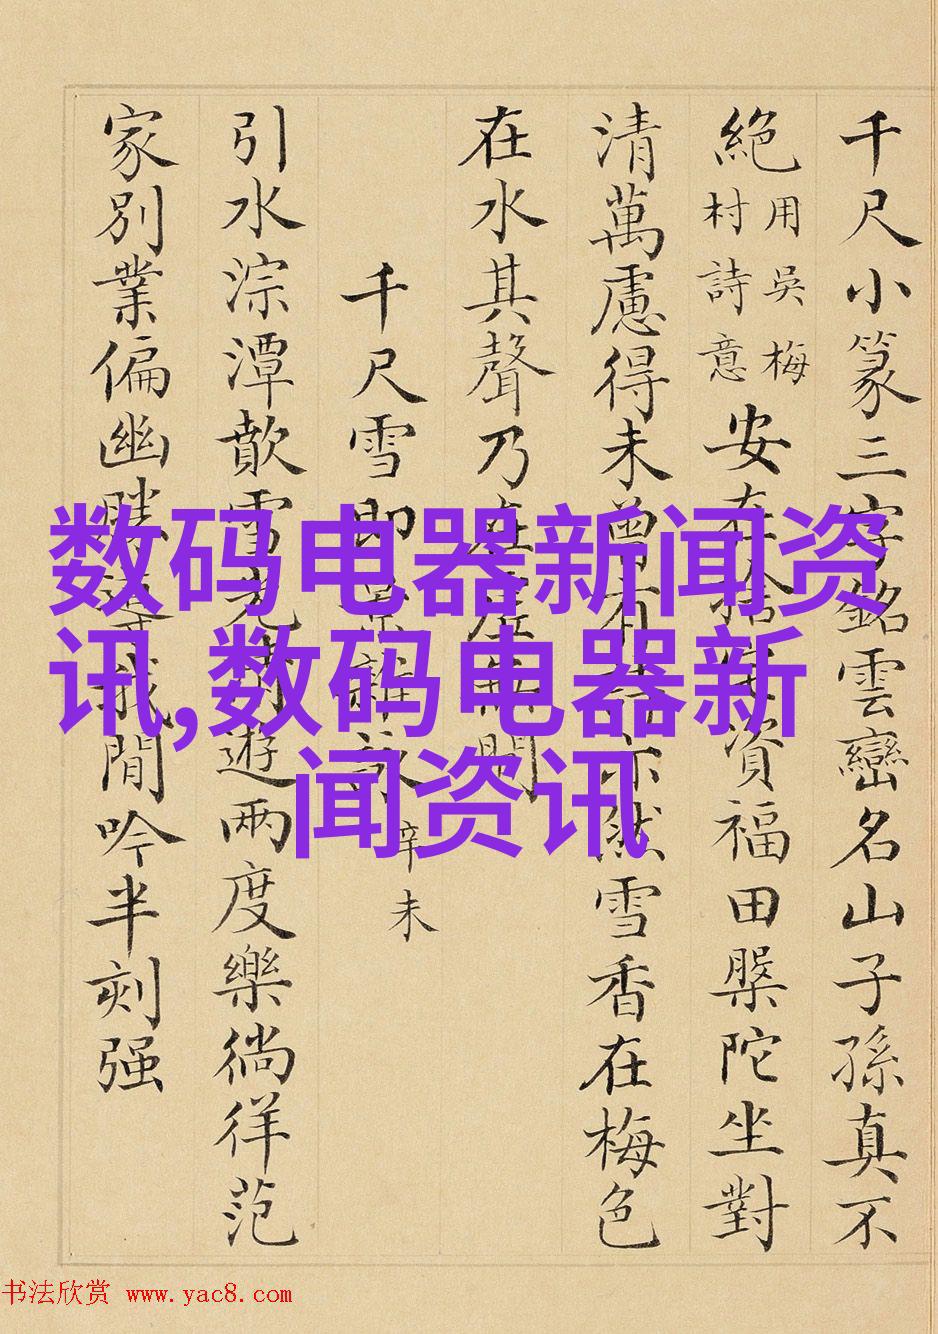 千尺小篆三字銘雲巒名山子孫真不
絕
用吳梅
村詩意
安在捨資福田槃陀坐對
清萬慮得未曾有亦然雪香在梅色
在水其聲乃在虛無間
千尺雪即景雜
辛未
引水淙潭歕雪光遊兩度樂徜徉范
家別業偏幽勝我閒吟半刻强
数码电器新闻资
讯,数码电器新
闻资讯
书法欣赏 www.yac8.com